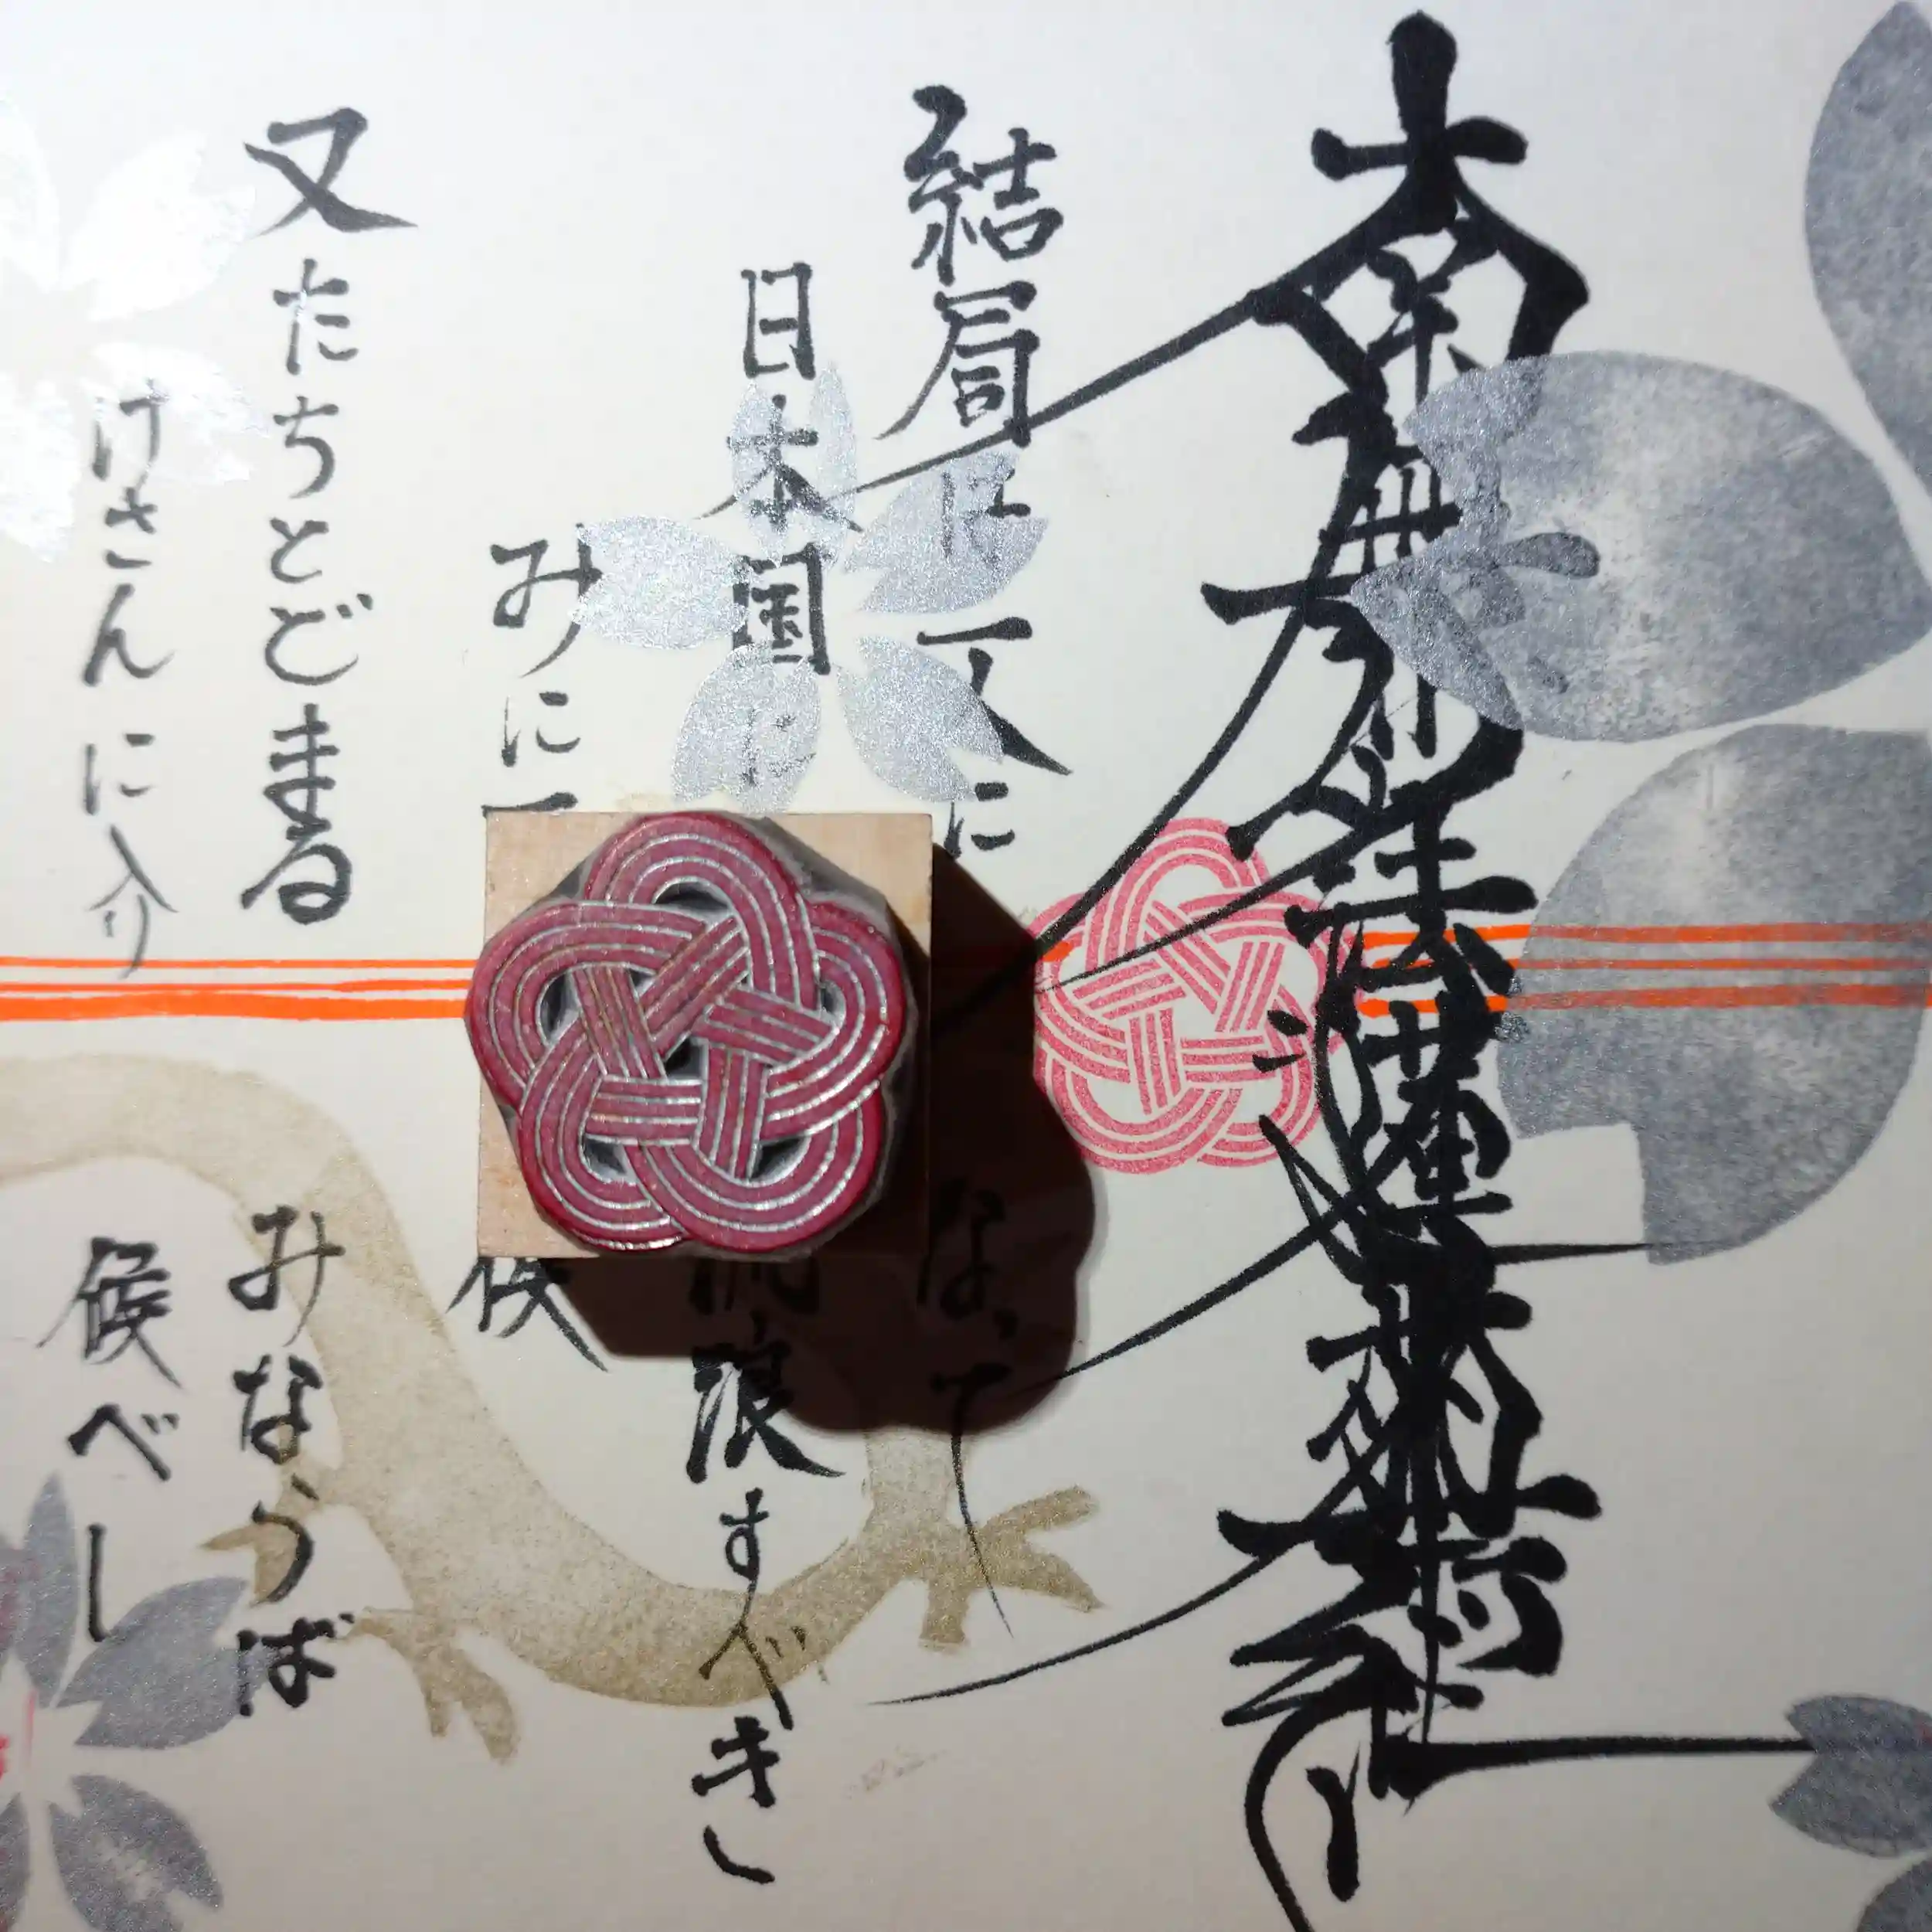 南無妙法蓮華経
結局は一人になって
日本国に流浪すべき
みに一候
又たちとどまるみならば
けさんに入り候べし